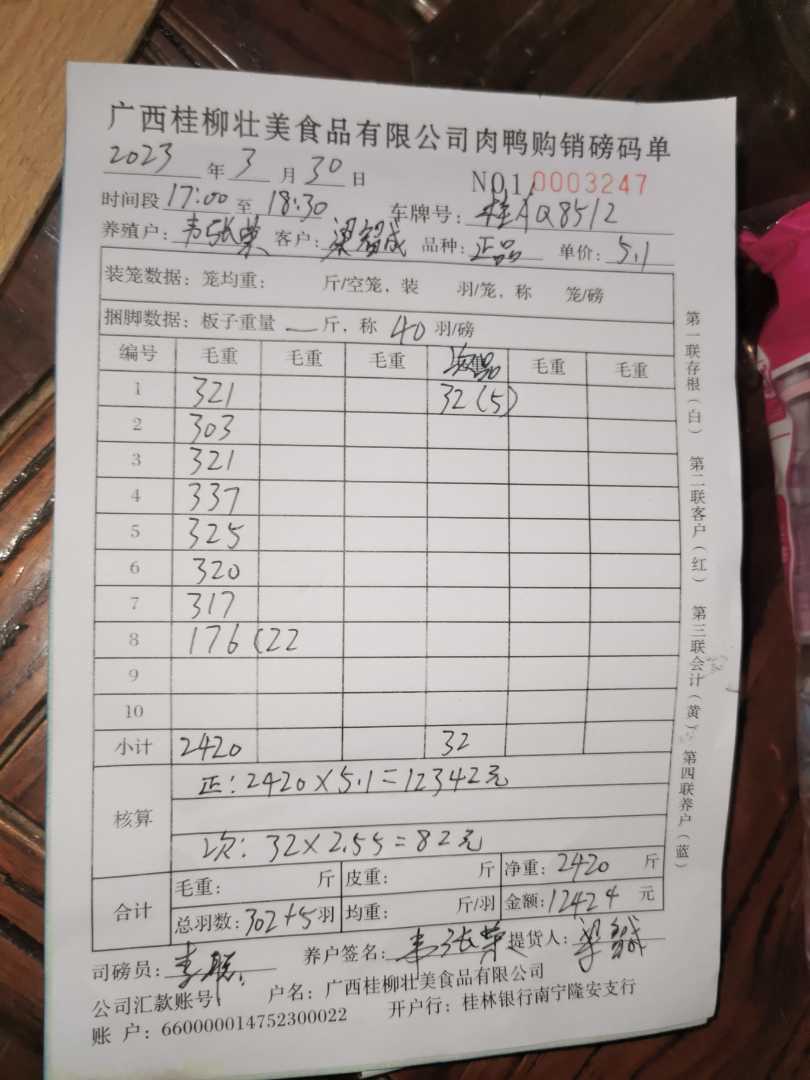 广西桂柳壮美食品有限公司肉鸭购销磅码单
2023 年 3 月 30 日 NO1 0003247
时间段 17:00 至 18:30 车牌号: 桂AQ8512
养殖户: 韦张荣 客户: 梁智成 品种: 正品 单价: 5.1
装笼数据: 笼均重: 斤/空笼, 装 羽/笼, 称 笼/磅
捆脚数据: 板子重量 — 斤, 称 40 羽/磅
编号 毛重 毛重 毛重 次品 毛重 毛重
1 321 32(5)
2 303
3 321
4 337
5 325
6 320
7 317
8 176(22
9
10
小计 2420 32
核算
正: 2420×5.1=12342元
次: 32×2.55=82元
合计
毛重: 斤 皮重: 斤 净重: 2420 斤
总羽数: 302+5 羽 均重: 斤/羽 金额: 12424 元
司磅员: 养户签名: 韦张荣 提货人: 梁智成
公司汇款账号 户名: 广西桂柳壮美食品有限公司
账 户: 660000014752300022 开户行: 桂林银行南宁隆安支行
第一联存根(白) 第二联客户(红) 第三联会计(黄) 第四联养户(蓝)